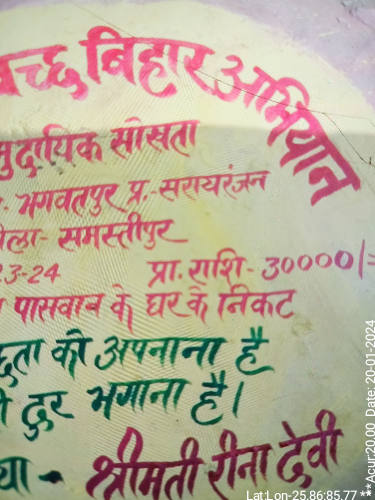 स्वच्छ बिहार अभियान
मुदायिक सोखता
भगवतपुर प्र.- सरायरंजन
ला- समस्तीपुर
23-24 प्रा. राशि- 30000/=
पासवान के घर के निकट
ता को अपनाना है
दूर भगाना है।
श्रीमती रीना देवी
Lat:Lon-25.86:85.77 ***Acur:20.00, Date: 20-01-2024